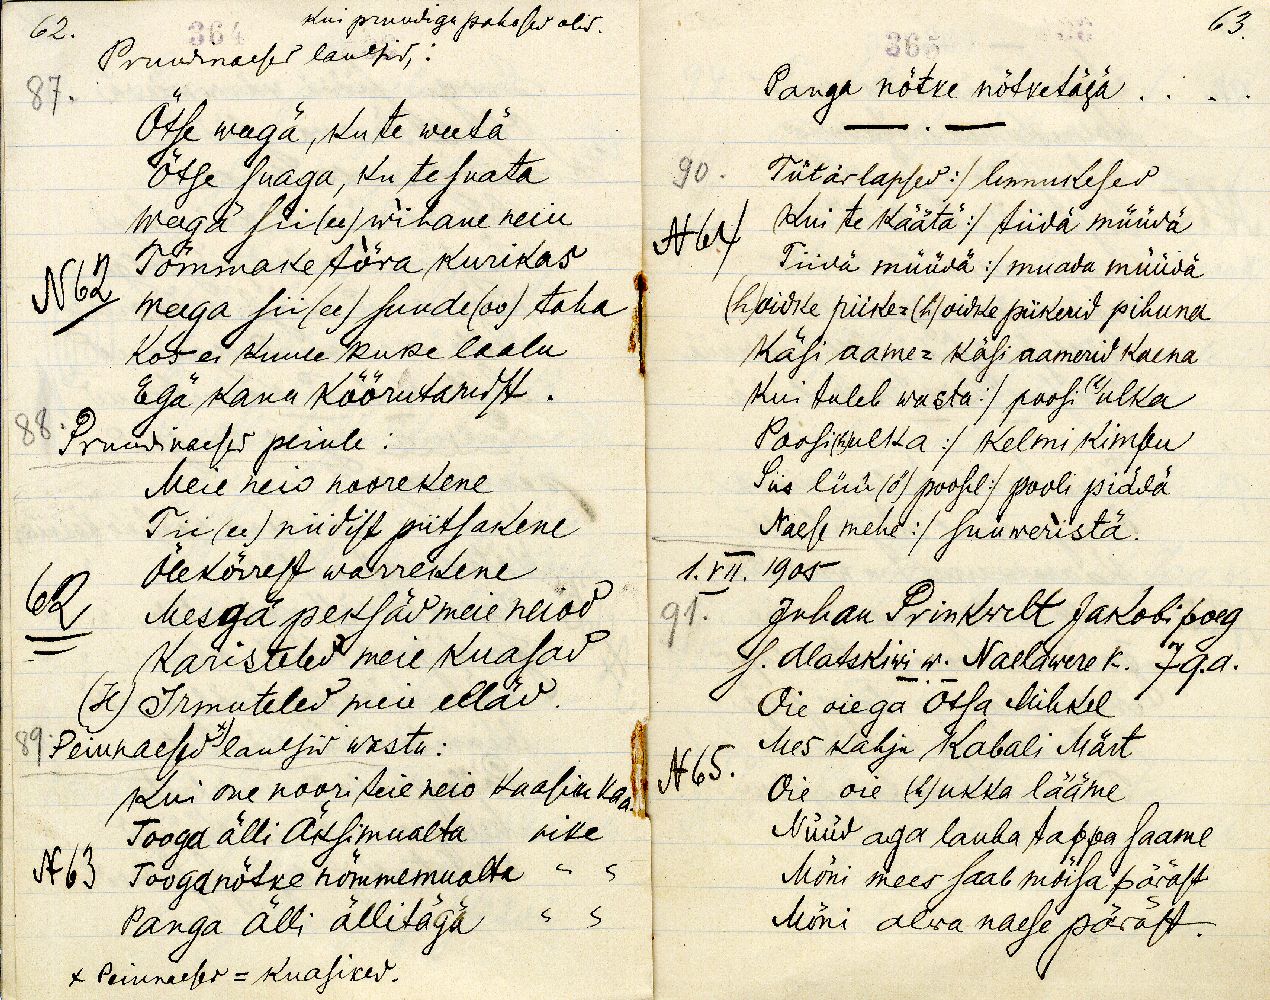 62.
364
kui pruudiga pahased olid.
Pruudinaesed laulsid,:
87.
Ötse weegä, ku te weetä
Ötse suaga, ku te suata
weegä sii(ee) wihane neiu
Tõmmake tõra kurikas
N 62
weega sii(ee) suude(oo) taha
Kos ei kuule kuke laalu
Egä kana köörutamist.
88.
Pruudinaesed peiule:
Meie neio noorekene
Tii(ee) niidist piitsakene
Õlekõrrest warrekene
62
Mesgä peksäd meie neiod
Karisteled meie kuasad
(H) Irmuteled meie elläd.
89.
Peiunaesed x) laulsid wasta:
Kui one noori teie neio kaasike kaa
Tooga älli Äksimualta sike
N 63
Tooga nõtke nõmmemualta " "
Panga älli ällitägä " "
x Peiunaesed = kuasiked.
63.
365
Panga nõtke nõtketägä . . . .
90.
Tütarlapsed:/ linnukesed
N 64
Kui te käätä:/ tiidä müüdä
Tiidä müüdä:/ muada müüdä
(h)oidke piike=(h)oidke piikerid pihuna
Käsi aame= käsi aamerid kaena
Kui tuleb wasta:/ poosi(h)ulka
Poosi(h)ulka:/ kelmi kimpu
Siis lüü(ö) poosel:/ pooli piädä
Naese mehe:/ suu weristä.
1. VII. 1905
91.
Juhan Prinkwelt Jakobi poeg
s. Alatskiwi w. Naelawere k. 79.a.
Oie oiega Otsa Mihkel
Mes kahju Kabali Märt
N 65.
Oie oie (h)ukka lääme
Nüüd aga lauba tappa saame
Mõni mees saab mõisa päräst
Mõni alwa naese päräst.